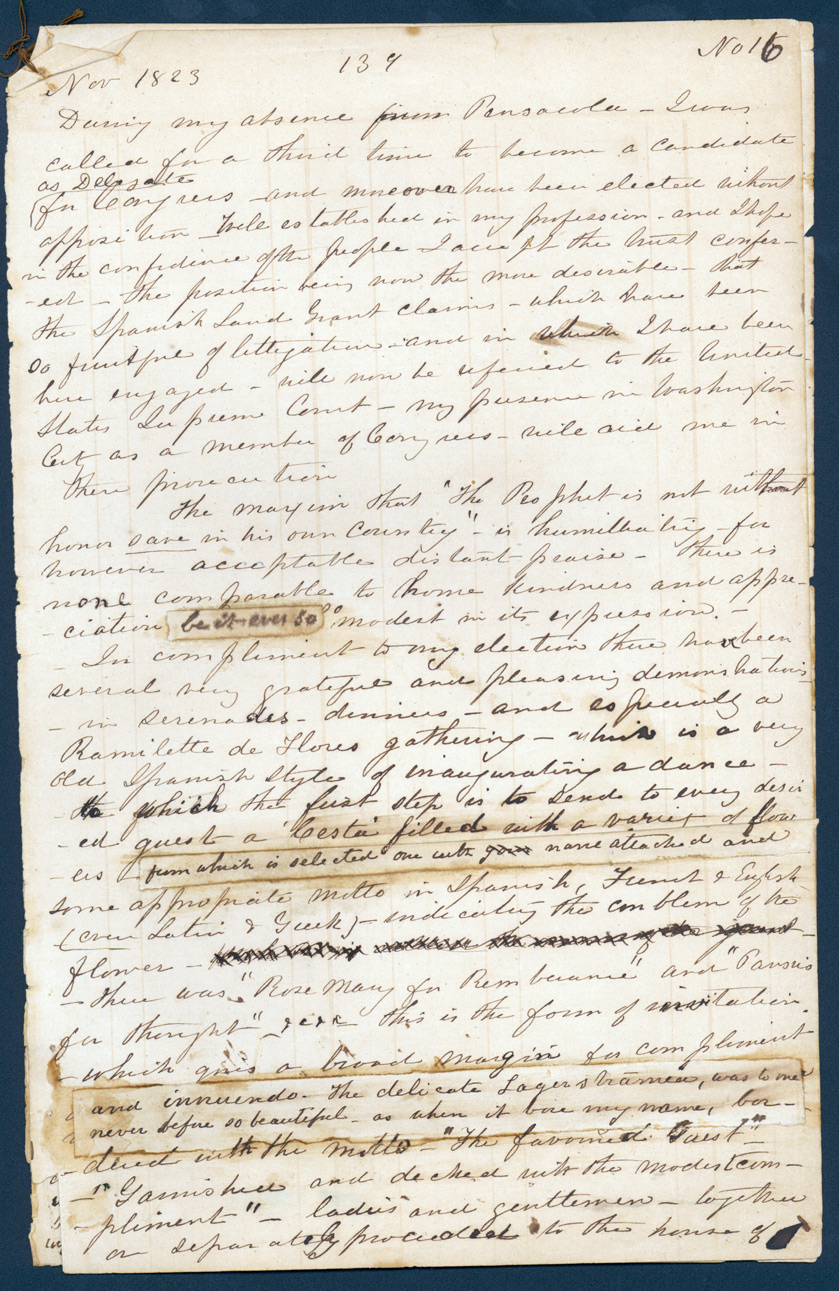 Nov 1823
139
No 16
During my absence from Pensacola - I was
called for a third time to become a candidate
as Delegate
for Congress - and moreover have been elected without
opposition - Well established in my profession - and I hope
in the confidence of the people - I accept the trust confer-
-ed - The position being now the more desirable - that
the Spanish Land Grant claims - which have been
so fruitful of littegation - and in which I have been
here engaged - will now be referred to the United-
States Supreme Court - my presence in Washington
City as a member of Congress - will aid me in
there prosecution
The maxim that "The Prophet is not without
honor save in his own Country" - is humiliating - for
however acceptable distant praise - there is
none comparable to home kindness and appre-
-ciation be it ever so modest in its expression. -
- In compliment to my election there have been
several very grateful and pleasing demonstrations
- in serenades - dinners - and especially a
Ramilette de Flores gathering - which is a very
old Spanish style of inaugurating a dance -
- to which the first step is to send to every desir
-ed guest a 'Cesta' filled with a variety of flow
-ers
from which is selected one with name attached and
some appropriate motto in Spanish, French & English
(even Latin & Greek) - indicating the emblem of the
flower -
- There was "Rose Mary for Remberance" and "Pansies
for thought" &c&c - this is the form of invitation
- which gives a broad margin for compliment
and innuendo. The delicate Lagerstramea, was to me
never before so beautiful - as when it bore my name, bor-
dered with the motto - "The favoured Guest" -
- "Garnished and decked with the modest com-
-pliment" - ladies and gentlemen - together
or separately proceeded to the house of